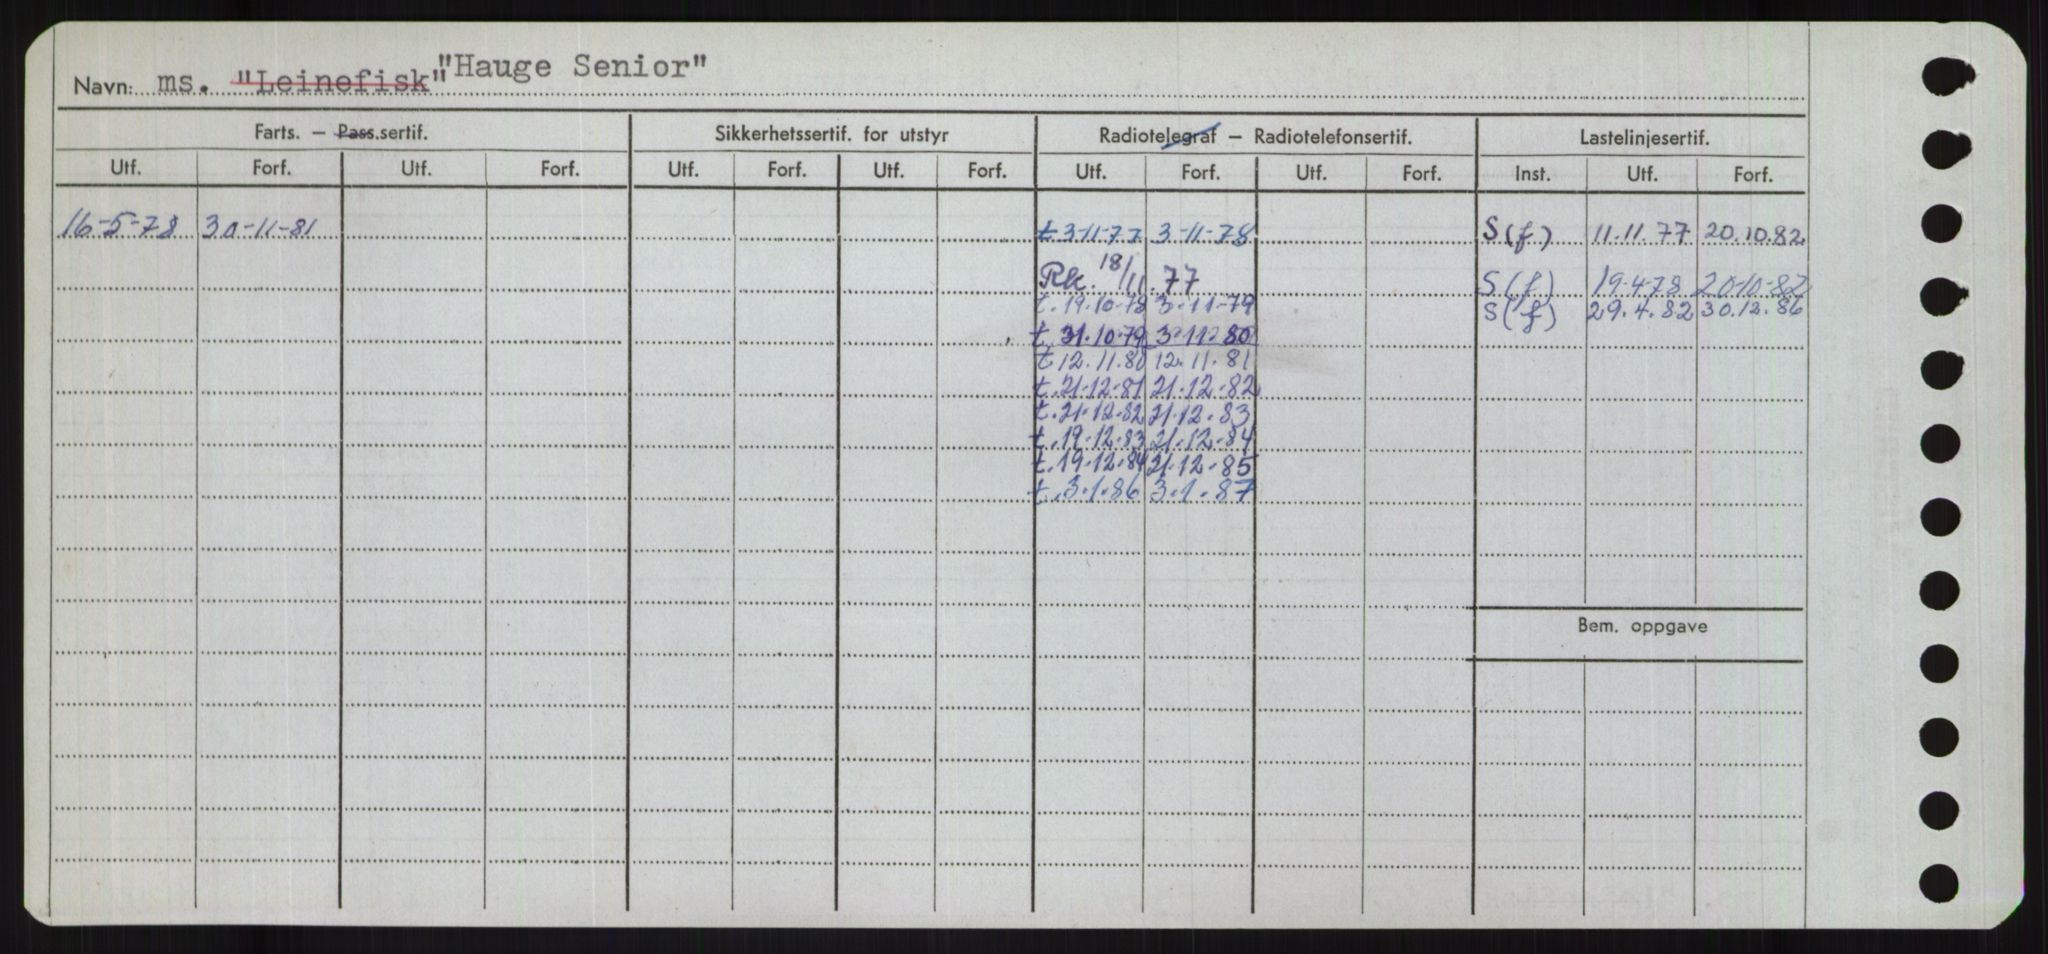 Navn: ms. "Leinefisk" "Hauge Senior"
Farts. — Pass.sertif. Sikkerhetssertif. for utstyr Radiotelegraf — Radiotelefonsertif. Lastelinjesertif.
Utf. Forf. Utf. Forf. Utf. Forf. Utf. Forf. Utf. Forf. Utf. Forf. Inst. Utf. Forf.
16-5-78 30-11-81 t 3-11-77 3-11-78 S(f) 11.11.77 20.10.82
Rk. 18/11.77 S(f) 19.4.78 20-10-82
t. 19.10-78 3-11-79 S(f) 29.4.82 30.12.86
t. 31.10.79 3.11.80
t 12.11.80 12.11.81
t. 21.12.81 21.12.82
t. 21.12.82 21.12.83
t. 19.12.83 21.12.84
t. 19.12.84 21.12.85
t. 3.1.86 3.1.87
Bem. oppgave